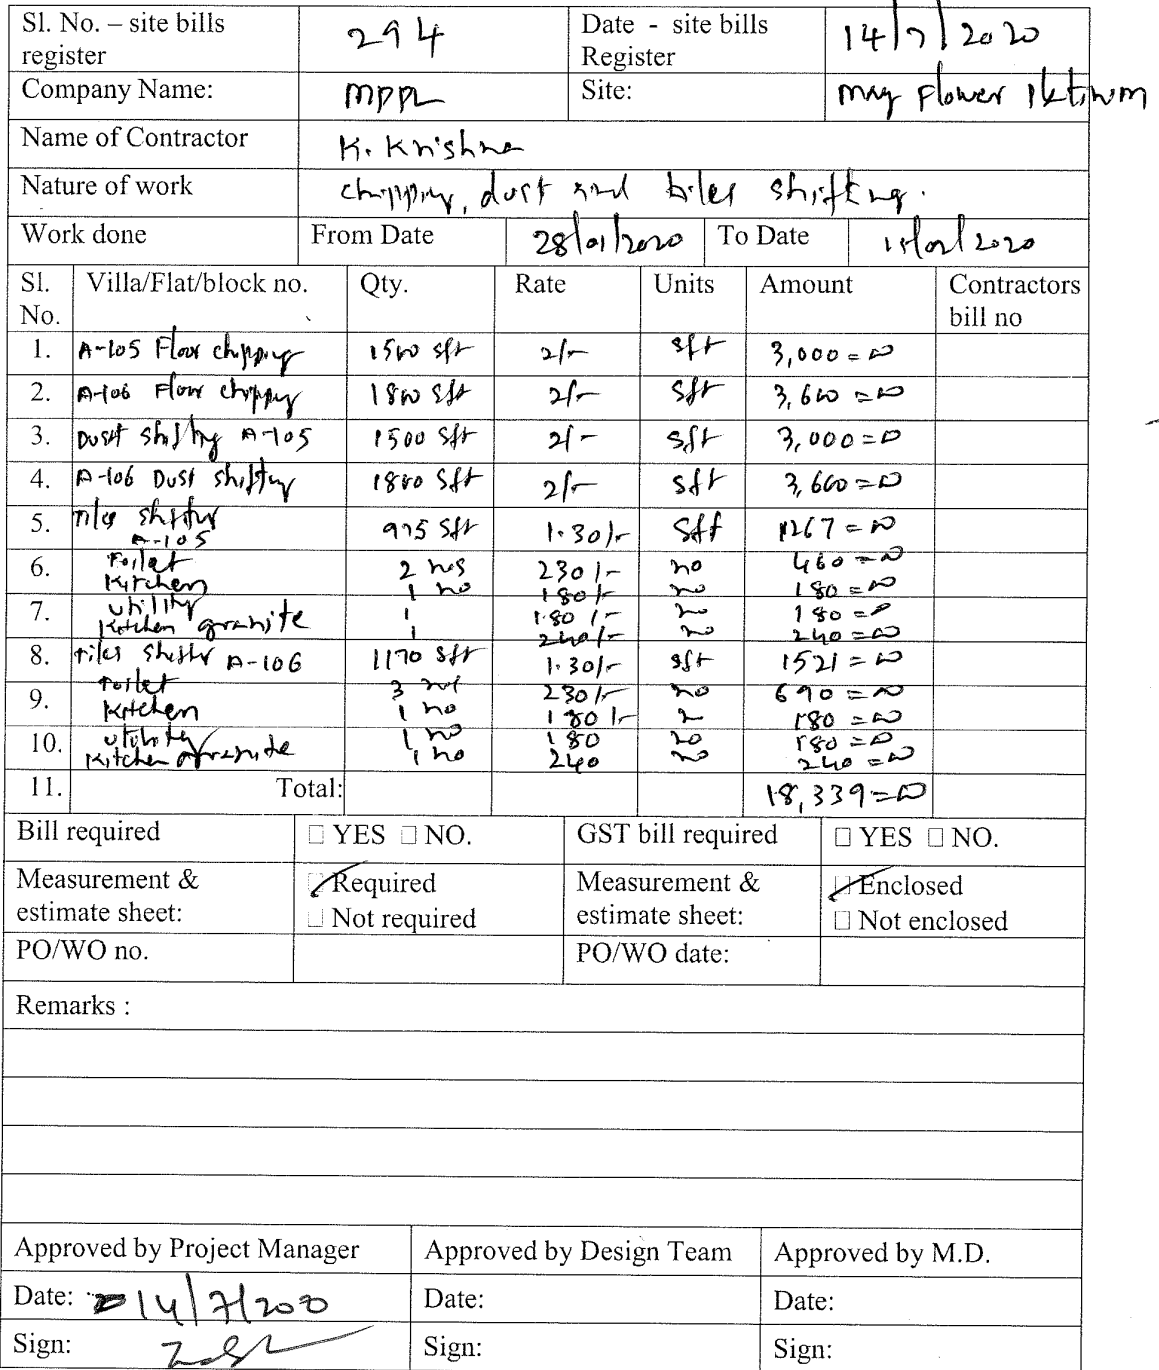 Sl. No. – site bills register 294 Date - site bills Register 14/7/2020
Company Name: MPPL Site: May Flower Platinum
Name of Contractor K. Krishna
Nature of work chipping, dust and tiles shifting.
Work done From Date 28/01/2020 To Date 15/02/2020
Sl. No. Villa/Flat/block no. Qty. Rate Units Amount Contractors bill no
1. A-105 Floor chipping 1500 sft 2/- sft 3,000=00
2. A-106 Floor chipping 1800 sft 2/- sft 3,600=00
3. Dust shifting A-105 1500 sft 2/- sft 3,000=00
4. A-106 Dust shifting 1800 sft 2/- sft 3,600=00
5. Tiles shifting A-105 975 sft 1.30/- sft 1267=00
6. Toilet 2 nos 230/- no 460=00
Kitchen 1 no 180/- no 180=00
7. utility 1 180/- no 180=00
Kitchen granite 1 240/- no 240=00
8. Tiles shifting A-106 1170 sft 1.30/- sft 1521=00
9. Toilet 3 nos 230/- no 690=00
Kitchen 1 no 180/- no 180=00
10. utility 1 no 180 no 180=00
Kitchen granite 1 no 240 no 240=00
11. Total: 18,339=00
Bill required □ YES □ NO. GST bill required □ YES □ NO.
Measurement & estimate sheet: □ Required □ Not required Measurement & estimate sheet: □ Enclosed □ Not enclosed
PO/WO no. PO/WO date:
Remarks :
Approved by Project Manager Approved by Design Team Approved by M.D.
Date: 14/7/2020 Date: Date:
Sign: Sign: Sign: